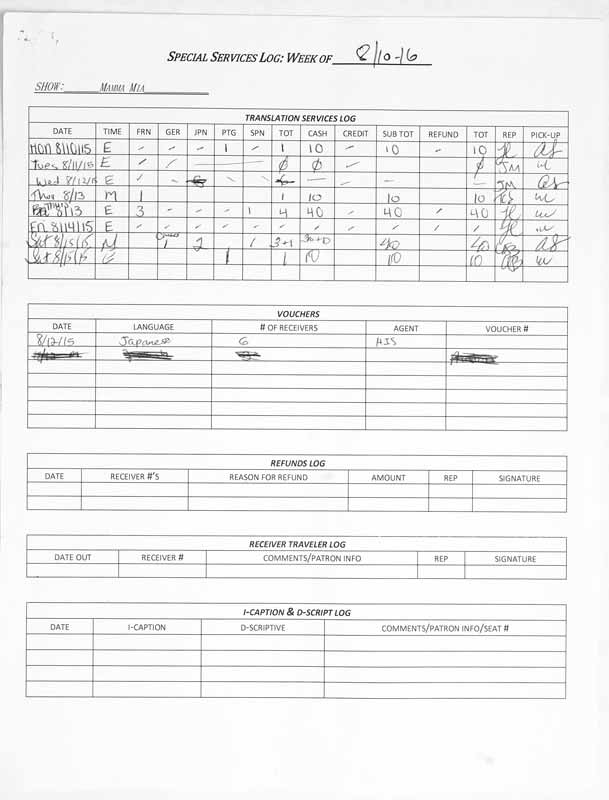 SPECIAL SERVICES LOG: WEEK OF 8/10-16
SHOW: MAMMA MIA
TRANSLATION SERVICES LOG
DATE TIME FRN GER JPN PTG SPN TOT CASH CREDIT SUB TOT REFUND TOT REP PICK-UP
Mon 8/10/15 E - - - 1 - 1 10 - 10 - 10
Tues 8/11/15 E - - ∅ ∅ - ∅ JM
Wed 8/12/15 E - - - - - - - - JM
Thur 8/13 M 1 1 10 10 10
Thurs 8/13 E 3 - - - 1 4 40 - 40 - 40
Fri 8/14/15 E - - - - - - - - - - -
Sat 8/15/15 M 1 2 1 3+1 40 40
Sat 8/15/15 E 1 1 10 10 10
VOUCHERS
DATE LANGUAGE # OF RECEIVERS AGENT VOUCHER #
8/12/15 Japanese 6 HIS
REFUNDS LOG
DATE RECEIVER #'S REASON FOR REFUND AMOUNT REP SIGNATURE
RECEIVER TRAVELER LOG
DATE OUT RECEIVER # COMMENTS/PATRON INFO REP SIGNATURE
I-CAPTION & D-SCRIPT LOG
DATE I-CAPTION D-SCRIPTIVE COMMENTS/PATRON INFO/SEAT #